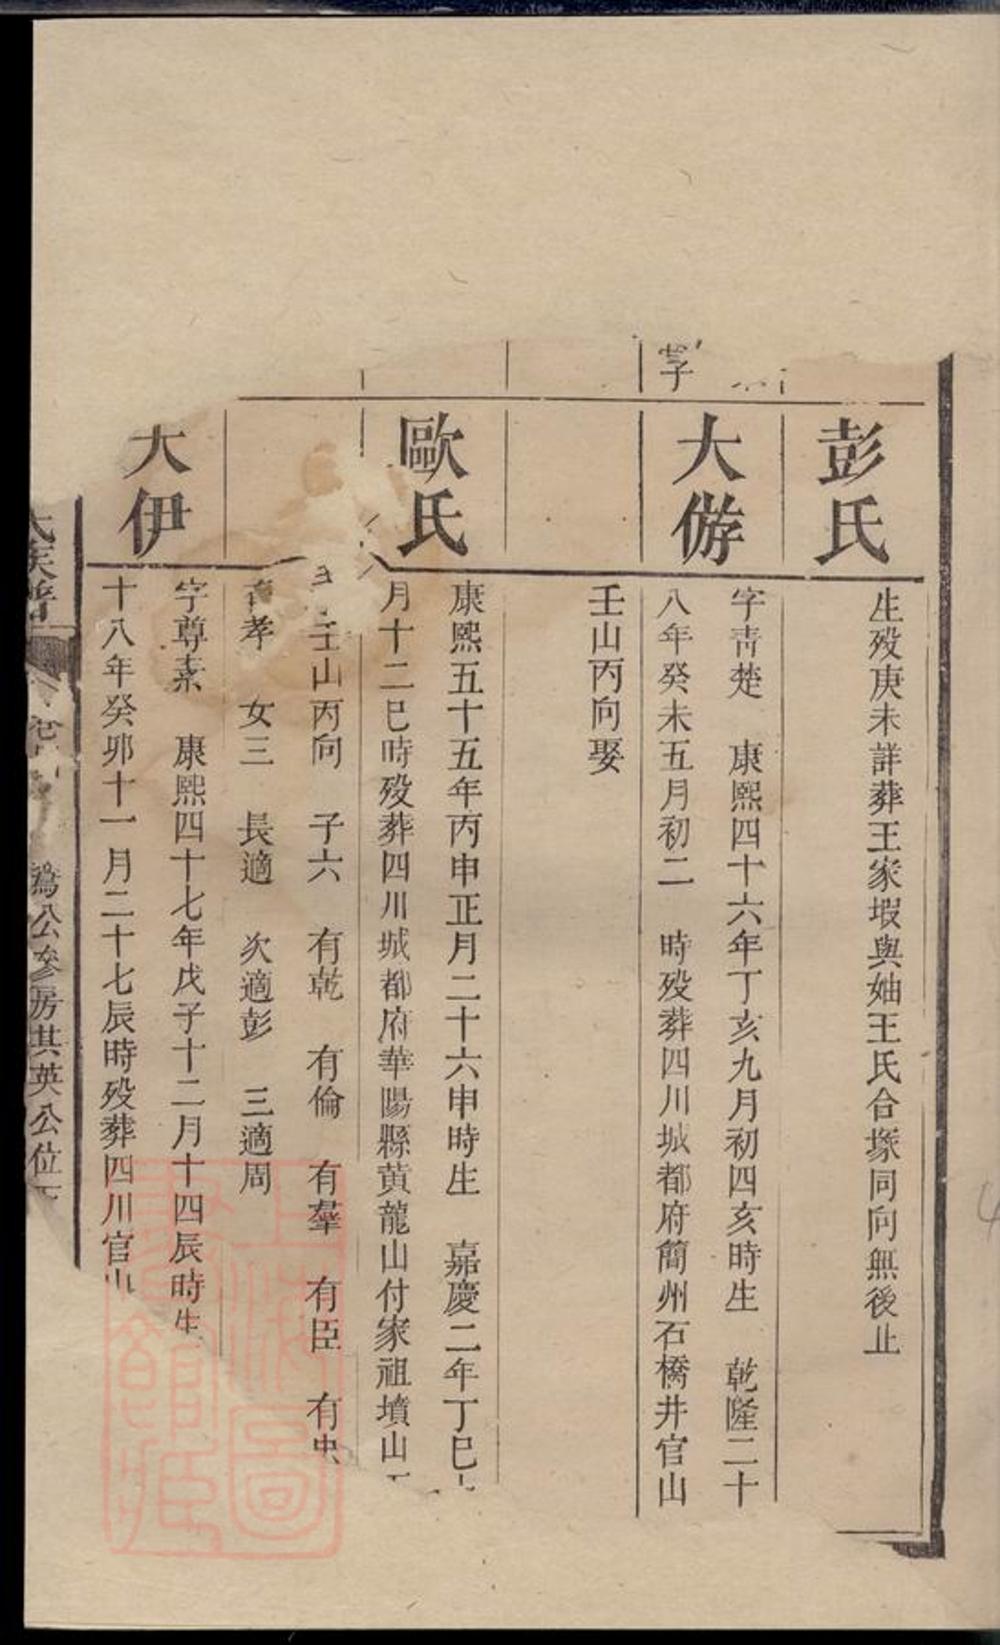 彭氏
生歿庚未詳葬王家塅與妯王氏合塚同向無後止
字
大㳺
字青楚 康熙四十六年丁亥九月初四亥時生 乾隆二十
八年癸未五月初二 時歿葬四川城都府簡州石橋井官山
壬山丙向娶
歐氏
康熙五十五年丙申正月二十六申時生 嘉慶二年丁巳
月十二巳時歿葬四川城都府華陽縣黄龍山付家祖墳山
壬山丙向 子六 有乾 有倫 有羣 有臣 有忠
孝 女三 長適 次適彭 三適周
大伊
字尊素 康熙四十七年戊子十二月十四辰時生
十八年癸卯十一月二十七辰時歿葬四川官山
氏族譜
公參房其英公位下
上海圖書館藏